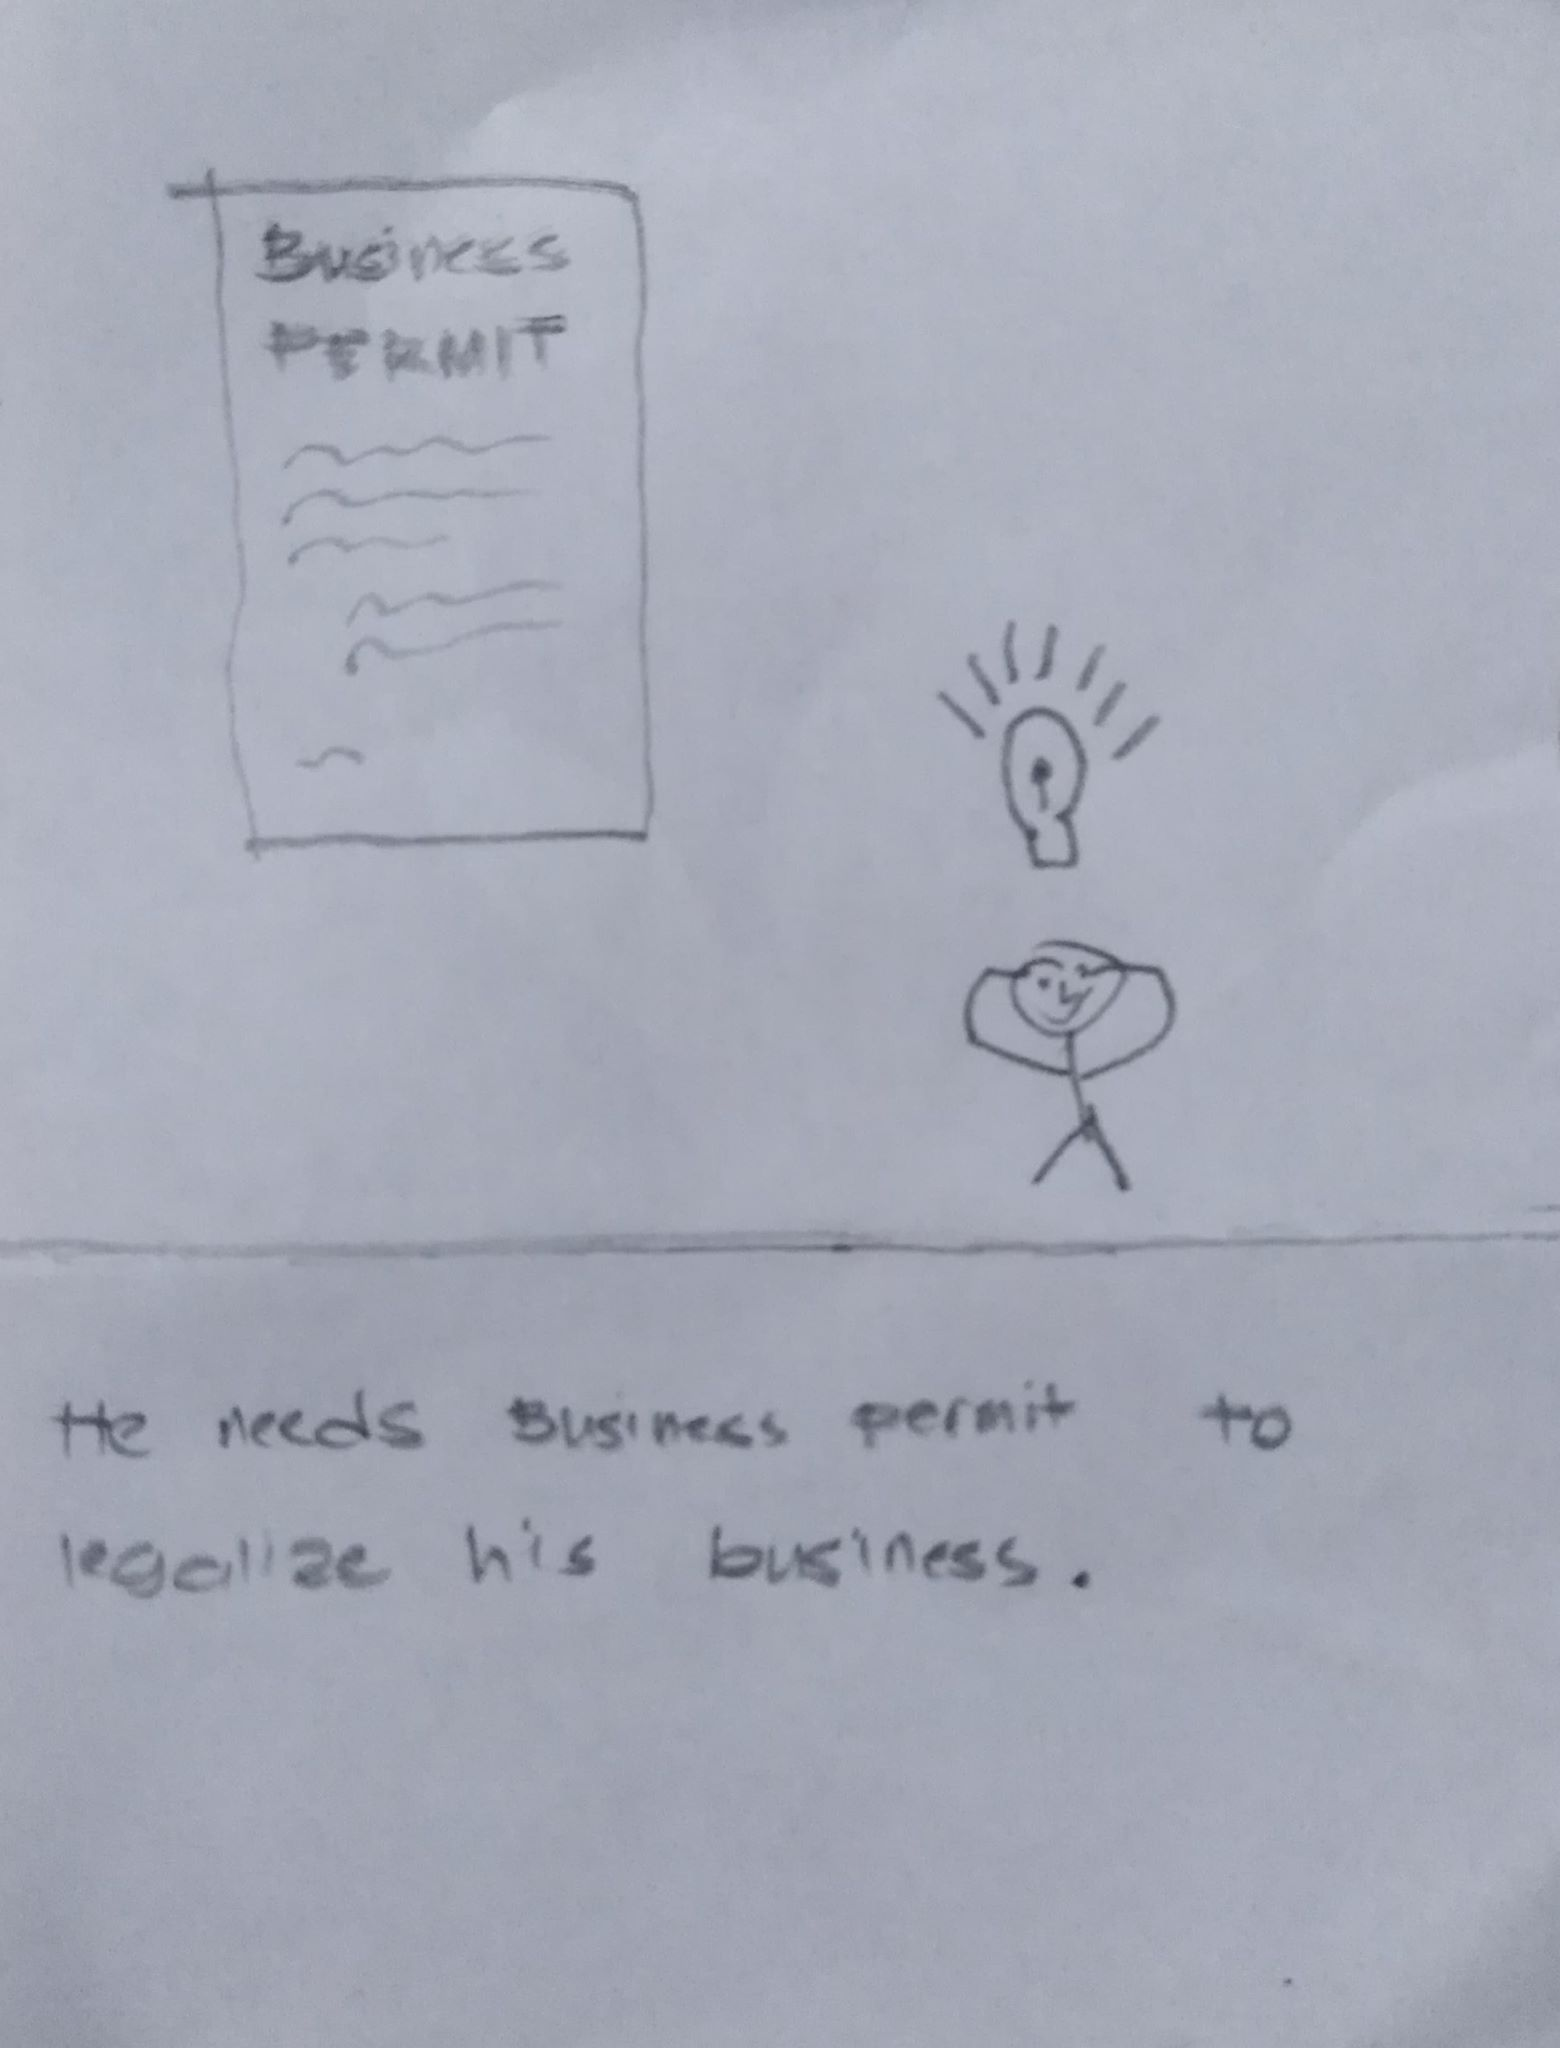 Business
PERMIT
He needs Business permit to
legalize his business.